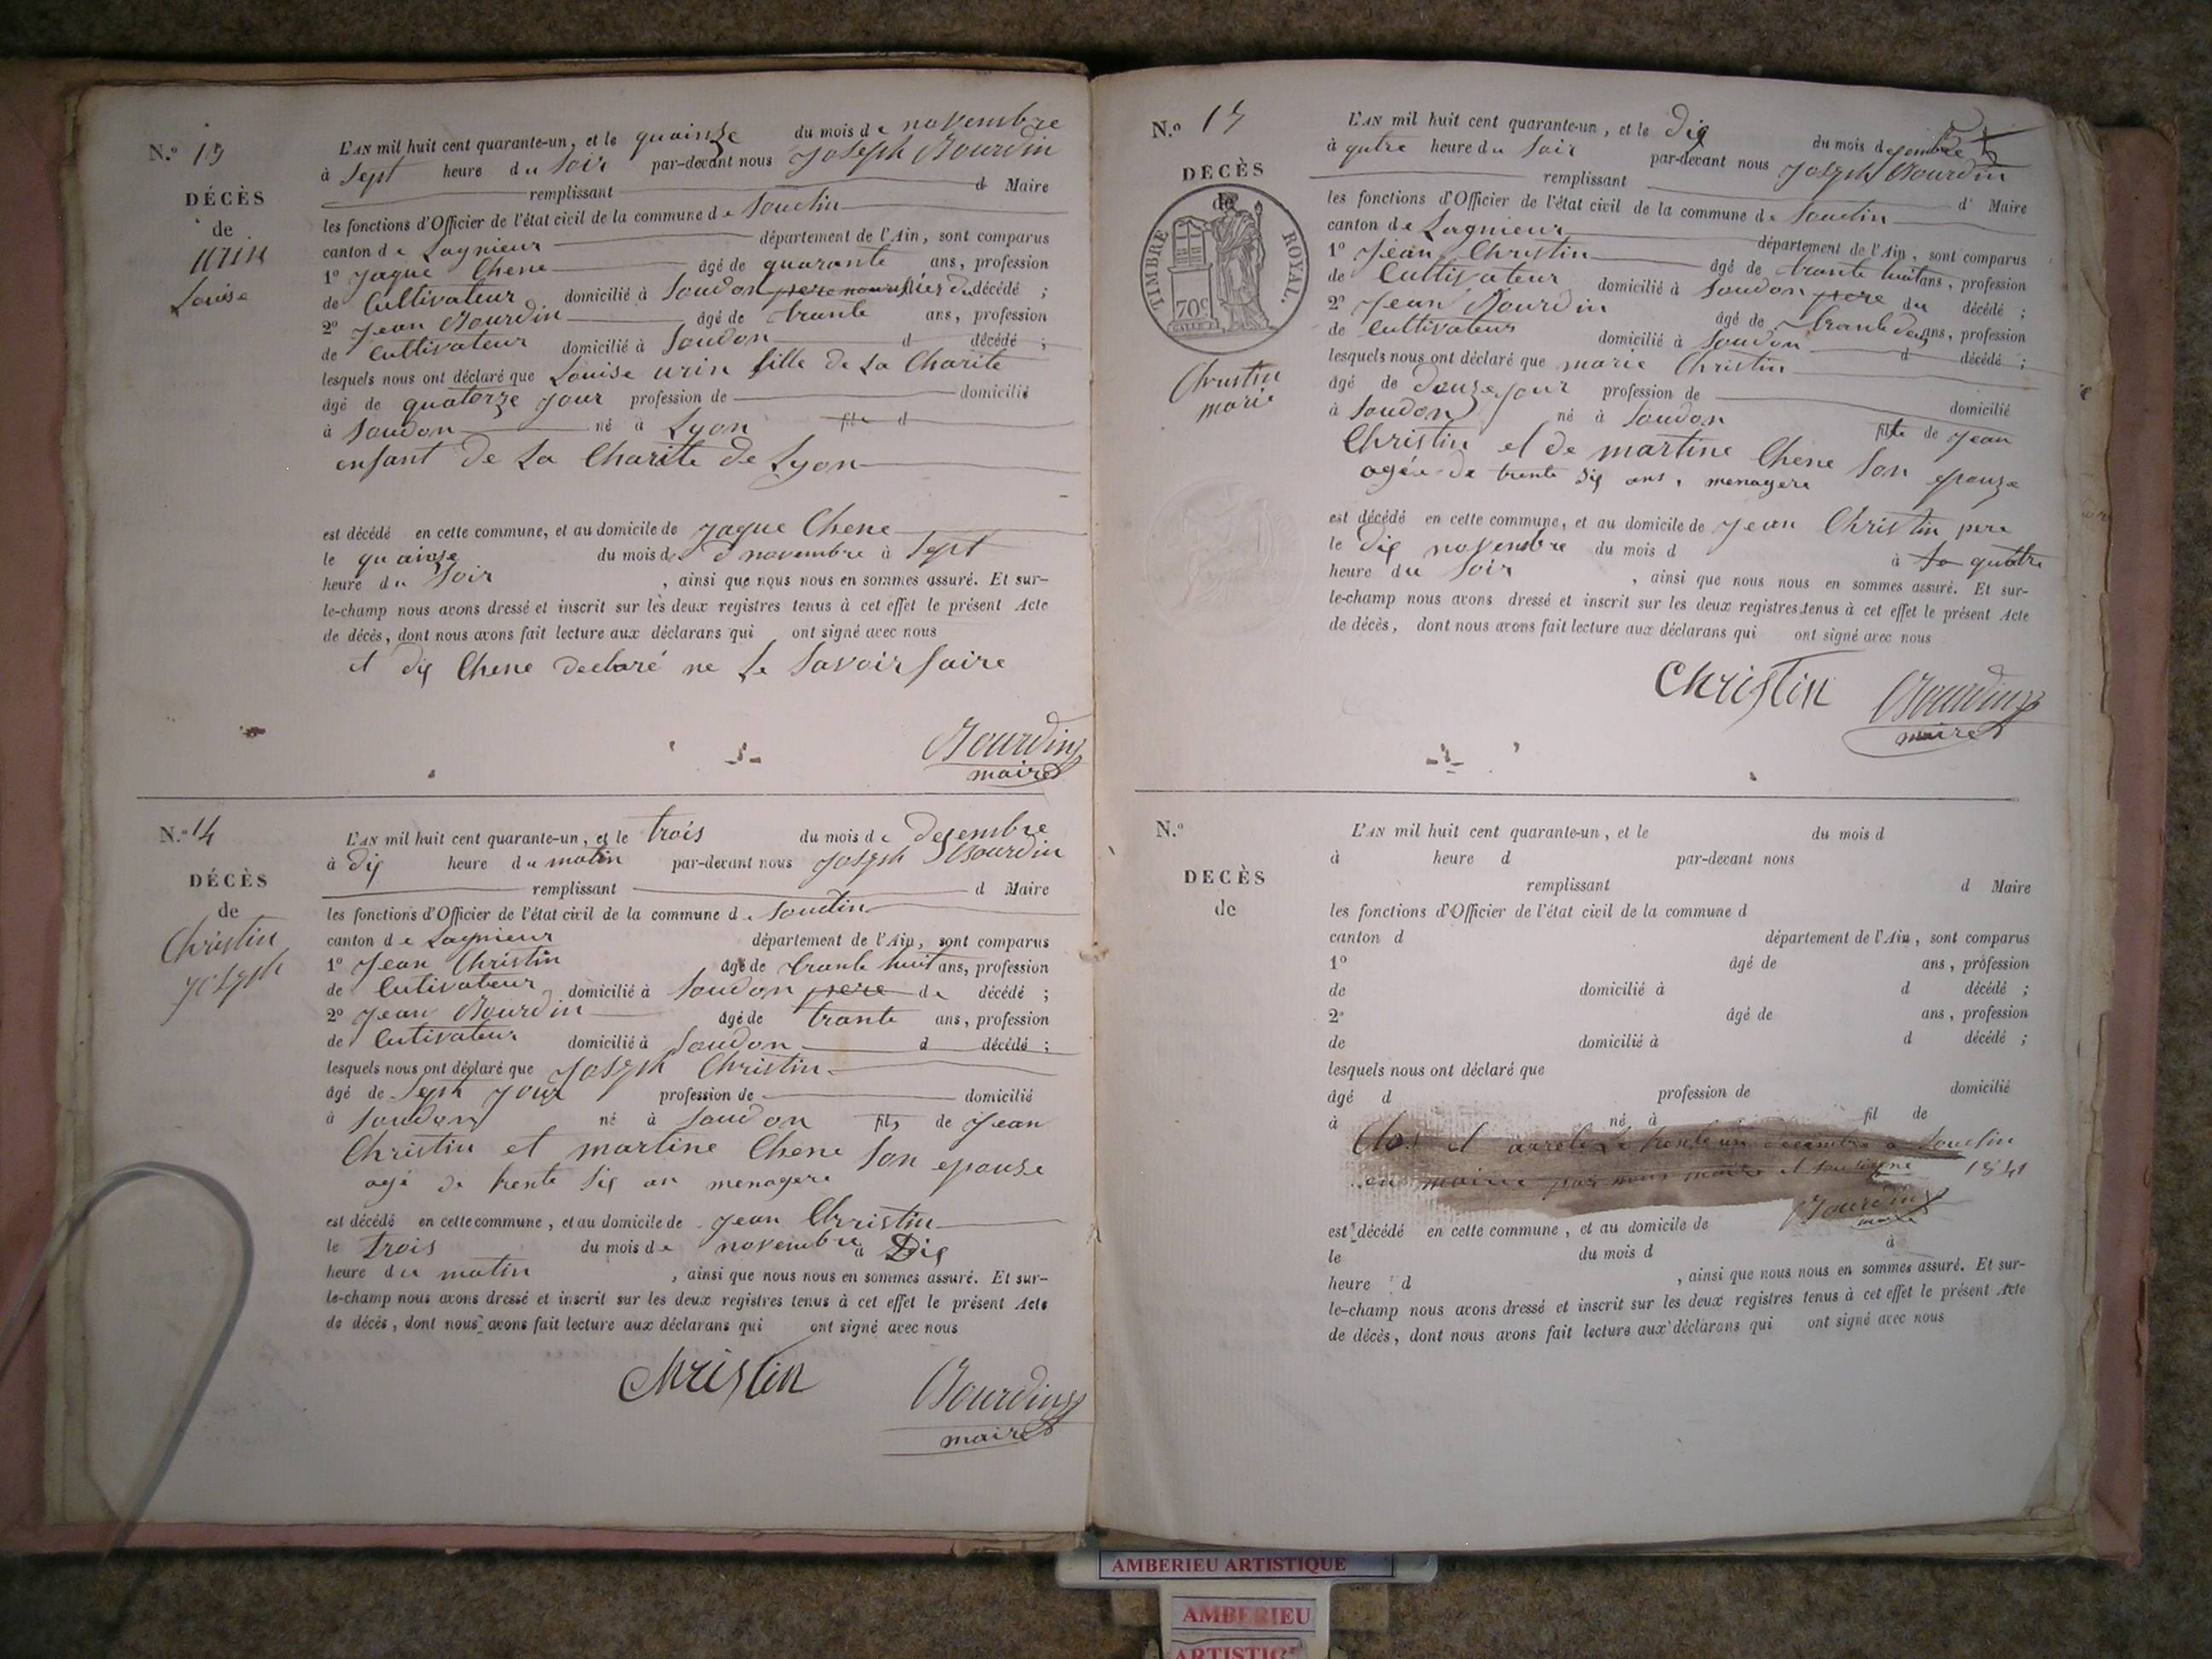 N.º 13
DÉCÈS
de
urin
Louise
L'AN mil huit cent quarante-un, et le quainze du mois de novembre
à Sept heure du Soir par-devant nous Joseph Bourdin
remplissant d Maire
les fonctions d'Officier de l'état civil de la commune de Souclin
canton de Lagnieur département de l'Ain, sont comparus
1º Jaque Chene âgé de quarante ans, profession
de Cultivateur domicilié à Soudon pere nourissier du décédé ;
2º Jean Bourdin âgé de trante ans, profession
de Cultivateur domicilié à Soudon d décédé ;
lesquels nous ont déclaré que Louise urin fille de La Charite
âgé de quatorze jour profession de domicilié
à Soudon né à Lyon fil d
enfant de La Charite de Lyon
est décédé en cette commune, et au domicile de Jaque Chene
le quainze du mois de novembre à Sept
heure du Soir , ainsi que nous nous en sommes assuré. Et sur-
le-champ nous avons dressé et inscrit sur les deux registres tenus à cet effet le présent Acte
de décès, dont nous avons fait lecture aux déclarans qui ont signé avec nous
et dig Chene declaré ne Le Savoir faire
Bourdin
maire
N.º 14
DÉCÈS
de
Christin
Joseph
L'AN mil huit cent quarante-un, et le trois du mois de desembre
à dig heure du matin par-devant nous Joseph Bourdin
remplissant d Maire
les fonctions d'Officier de l'état civil de la commune d. Souclin
canton de Lagnieur département de l'Ain, sont comparus
1º Jean Christin âgé de trante huit ans, profession
de Cutivateur domicilié à Soudon pere de décédé ;
2º Jean Bourdin âgé de trante ans, profession
de Cutivateur domicilié à Soudon d décédé ;
lesquels nous ont déclaré que Joseph Christin
âgé de Sept jour profession de domicilié
à Soudon né à Soudon fils de Jean
Christin et martine Chene Son epouse
agé de trente Sig an menagere
est décédé en cette commune, et au domicile de Jean Christin
le trois du mois de novembre à Dig
heure du matin , ainsi que nous nous en sommes assuré. Et sur-
le-champ nous avons dressé et inscrit sur les deux registres tenus à cet effet le présent Acte
de décès, dont nous avons fait lecture aux déclarans qui ont signé avec nous
Christin
Bourdin
maire
N.º 15
DÉCÈS
de
TIMBRE ROYAL.
70c
Christin
marie
L'AN mil huit cent quarante-un, et le dig du mois desembre
à qutre heure du Soir par-devant nous Joseph Bourdin
remplissant d' Maire
les fonctions d'Officier de l'état civil de la commune de Souclin
canton de Lagnieur département de l'Ain, sont comparus
1º Jean Christin âgé de trante huit ans, profession
de Cultivateur domicilié à Soudon pere du décédé ;
2º Jean Bourdin âgé de trante deug ans, profession
de Cultivateur domicilié à Soudon d décédé ;
lesquels nous ont déclaré que marie Christin
âgé de douze jour profession de domicilié
à Soudon né à Soudon fille de Jean
Christin et de martine Chene Son epouze
agée de trente Sig ans, menagere
est décédé en cette commune, et au domicile de Jean Christin pere
le dig novembre du mois d à quttre
heure du Soir , ainsi que nous nous en sommes assuré. Et sur-
le-champ nous avons dressé et inscrit sur les deux registres tenus à cet effet le présent Acte
de décès, dont nous avons fait lecture aux déclarans qui ont signé avec nous
Christin
Bourdin
maire
N.º
DECÈS
de
L'AN mil huit cent quarante-un, et le du mois d
à heure d par-devant nous
remplissant d Maire
les fonctions d'Officier de l'état civil de la commune d
canton d département de l'Ain, sont comparus
1º âgé de ans, profession
de domicilié à d décédé ;
2º âgé de ans, profession
de domicilié à d décédé ;
lesquels nous ont déclaré que
âgé d profession de domicilié
à né à fil de
Clos et arrete Le trente un decembre a Souclin
en mairie par nous maire et Soussigné 1841
Bourdin
maire
est décédé en cette commune, et au domicile de
le du mois d à
heure d , ainsi que nous nous en sommes assuré. Et sur-
le-champ nous avons dressé et inscrit sur les deux registres tenus à cet effet le présent Acte
de décès, dont nous avons fait lecture aux déclarans qui ont signé avec nous
AMBERIEU ARTISTIQUE
AMBERIEU
ARTISTIQ